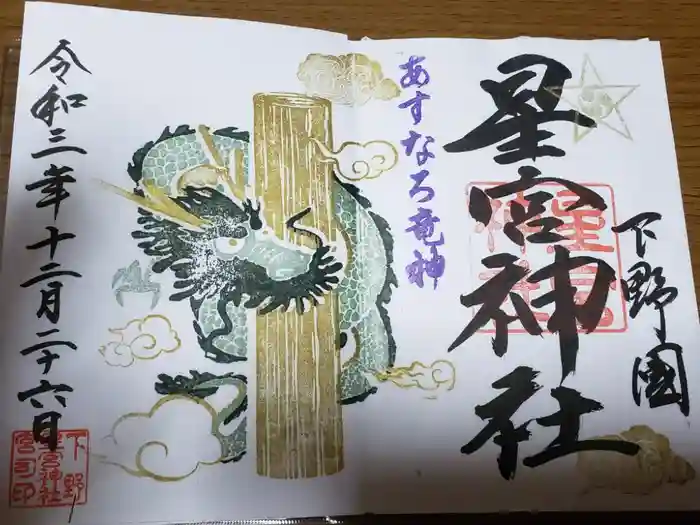 下野國
星宮神社
あすなろ竜神
令和三年十二月二十六日
下野
星宮神社
宮司印